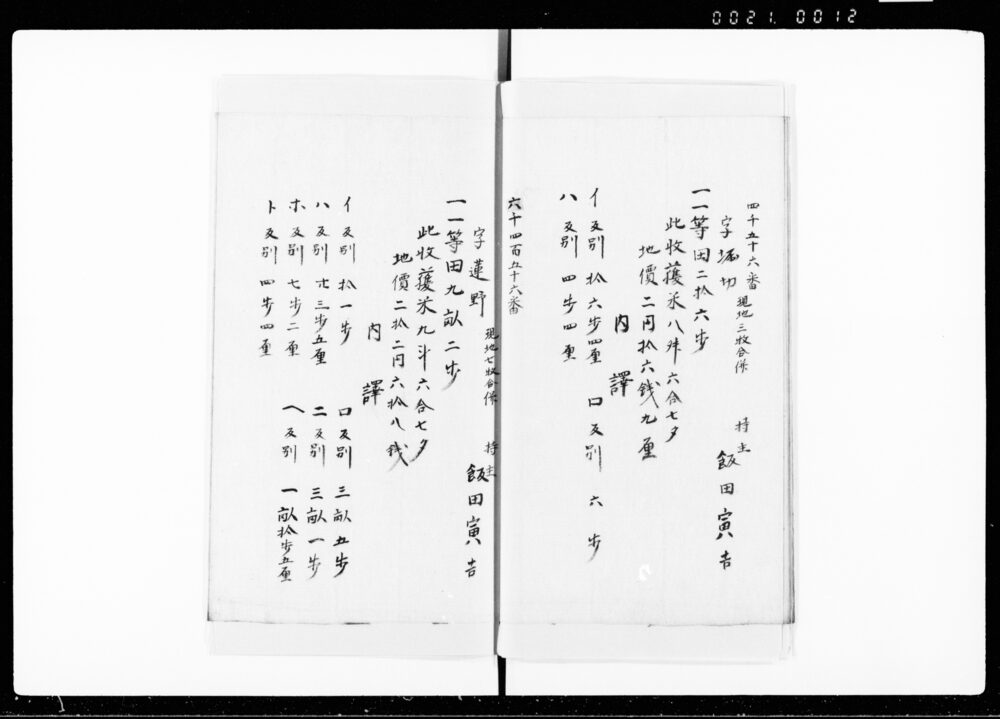 0021.0012
四千五十六番
字堀切 現地三牧合併 持主 飯田寅吉
一一等田二拾六歩
此收獲米八舛六合七夕
地價二円拾六錢九厘
内譯
イ反別 拾六歩四厘 ロ反別 六歩
ハ反別 四歩四厘
六千四百五十六番
字蓮野 現地七牧合併 持主 飯田寅吉
一一等田九畝二歩
此收獲米九斗六合七夕
地價二拾二円六拾八錢
内譯
イ反別 拾一歩 ロ反別 三畝五歩
ハ反別 廿三歩五厘 ニ反別 三畝一歩
ホ反別 七歩二厘 ヘ反別 一畝拾歩五厘
ト反別 四歩四厘